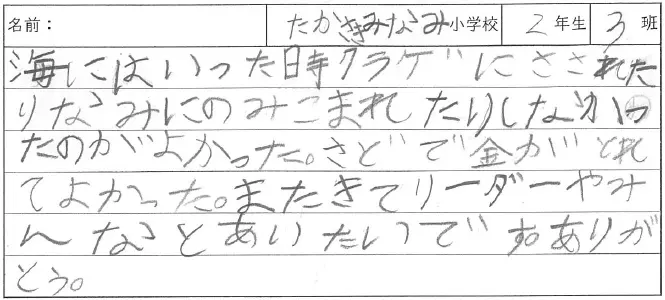 名前： たかさきみなみ小学校 2年生 3班
海にはいった時クラゲにさされた
りなみにのみこまれたりしなかっ
たのがよかった。さどで金がとれ
てよかった。またきてリーダーやみ
んなとあいたいでずありが
とう。